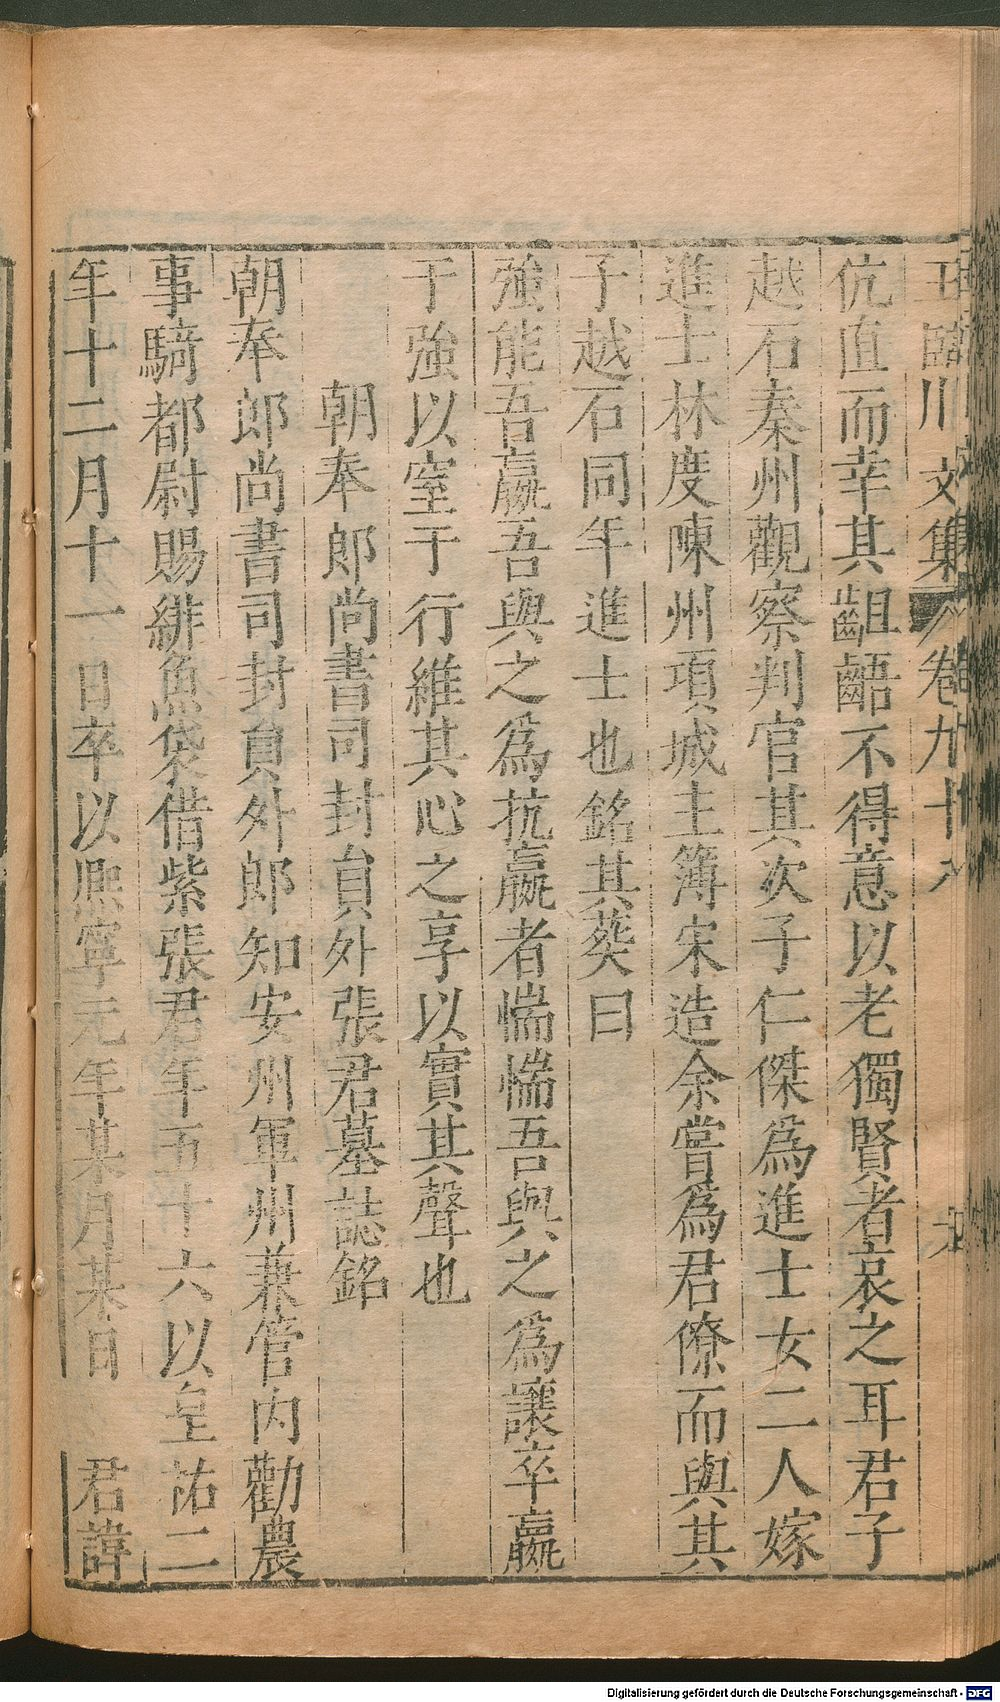 王臨川文集 卷九十
伉直而幸其齟齬不得意以老獨賢者哀之耳君子
越石秦州觀察判官其次子仁傑爲進士女二人嫁
進士林度陳州項城主簿宋造余嘗爲君僚而與其
子越石同年進士也銘其葬曰
強能吾嬴吾與之爲抗嬴者惴惴吾與之爲讓卒嬴
于強以窒于行維其心之享以實其聲也
朝奉郎尚書司封員外張君墓誌銘
朝奉郎尚書司封員外郎知安州軍州兼管内勸農
事騎都尉賜緋魚袋借紫張君年五十六以皇祐二
年十二月十一日卒以熈寧元年某月某日 君諱
Digitalisierung gefördert durch die Deutsche Forschungsgemeinschaft - DFG